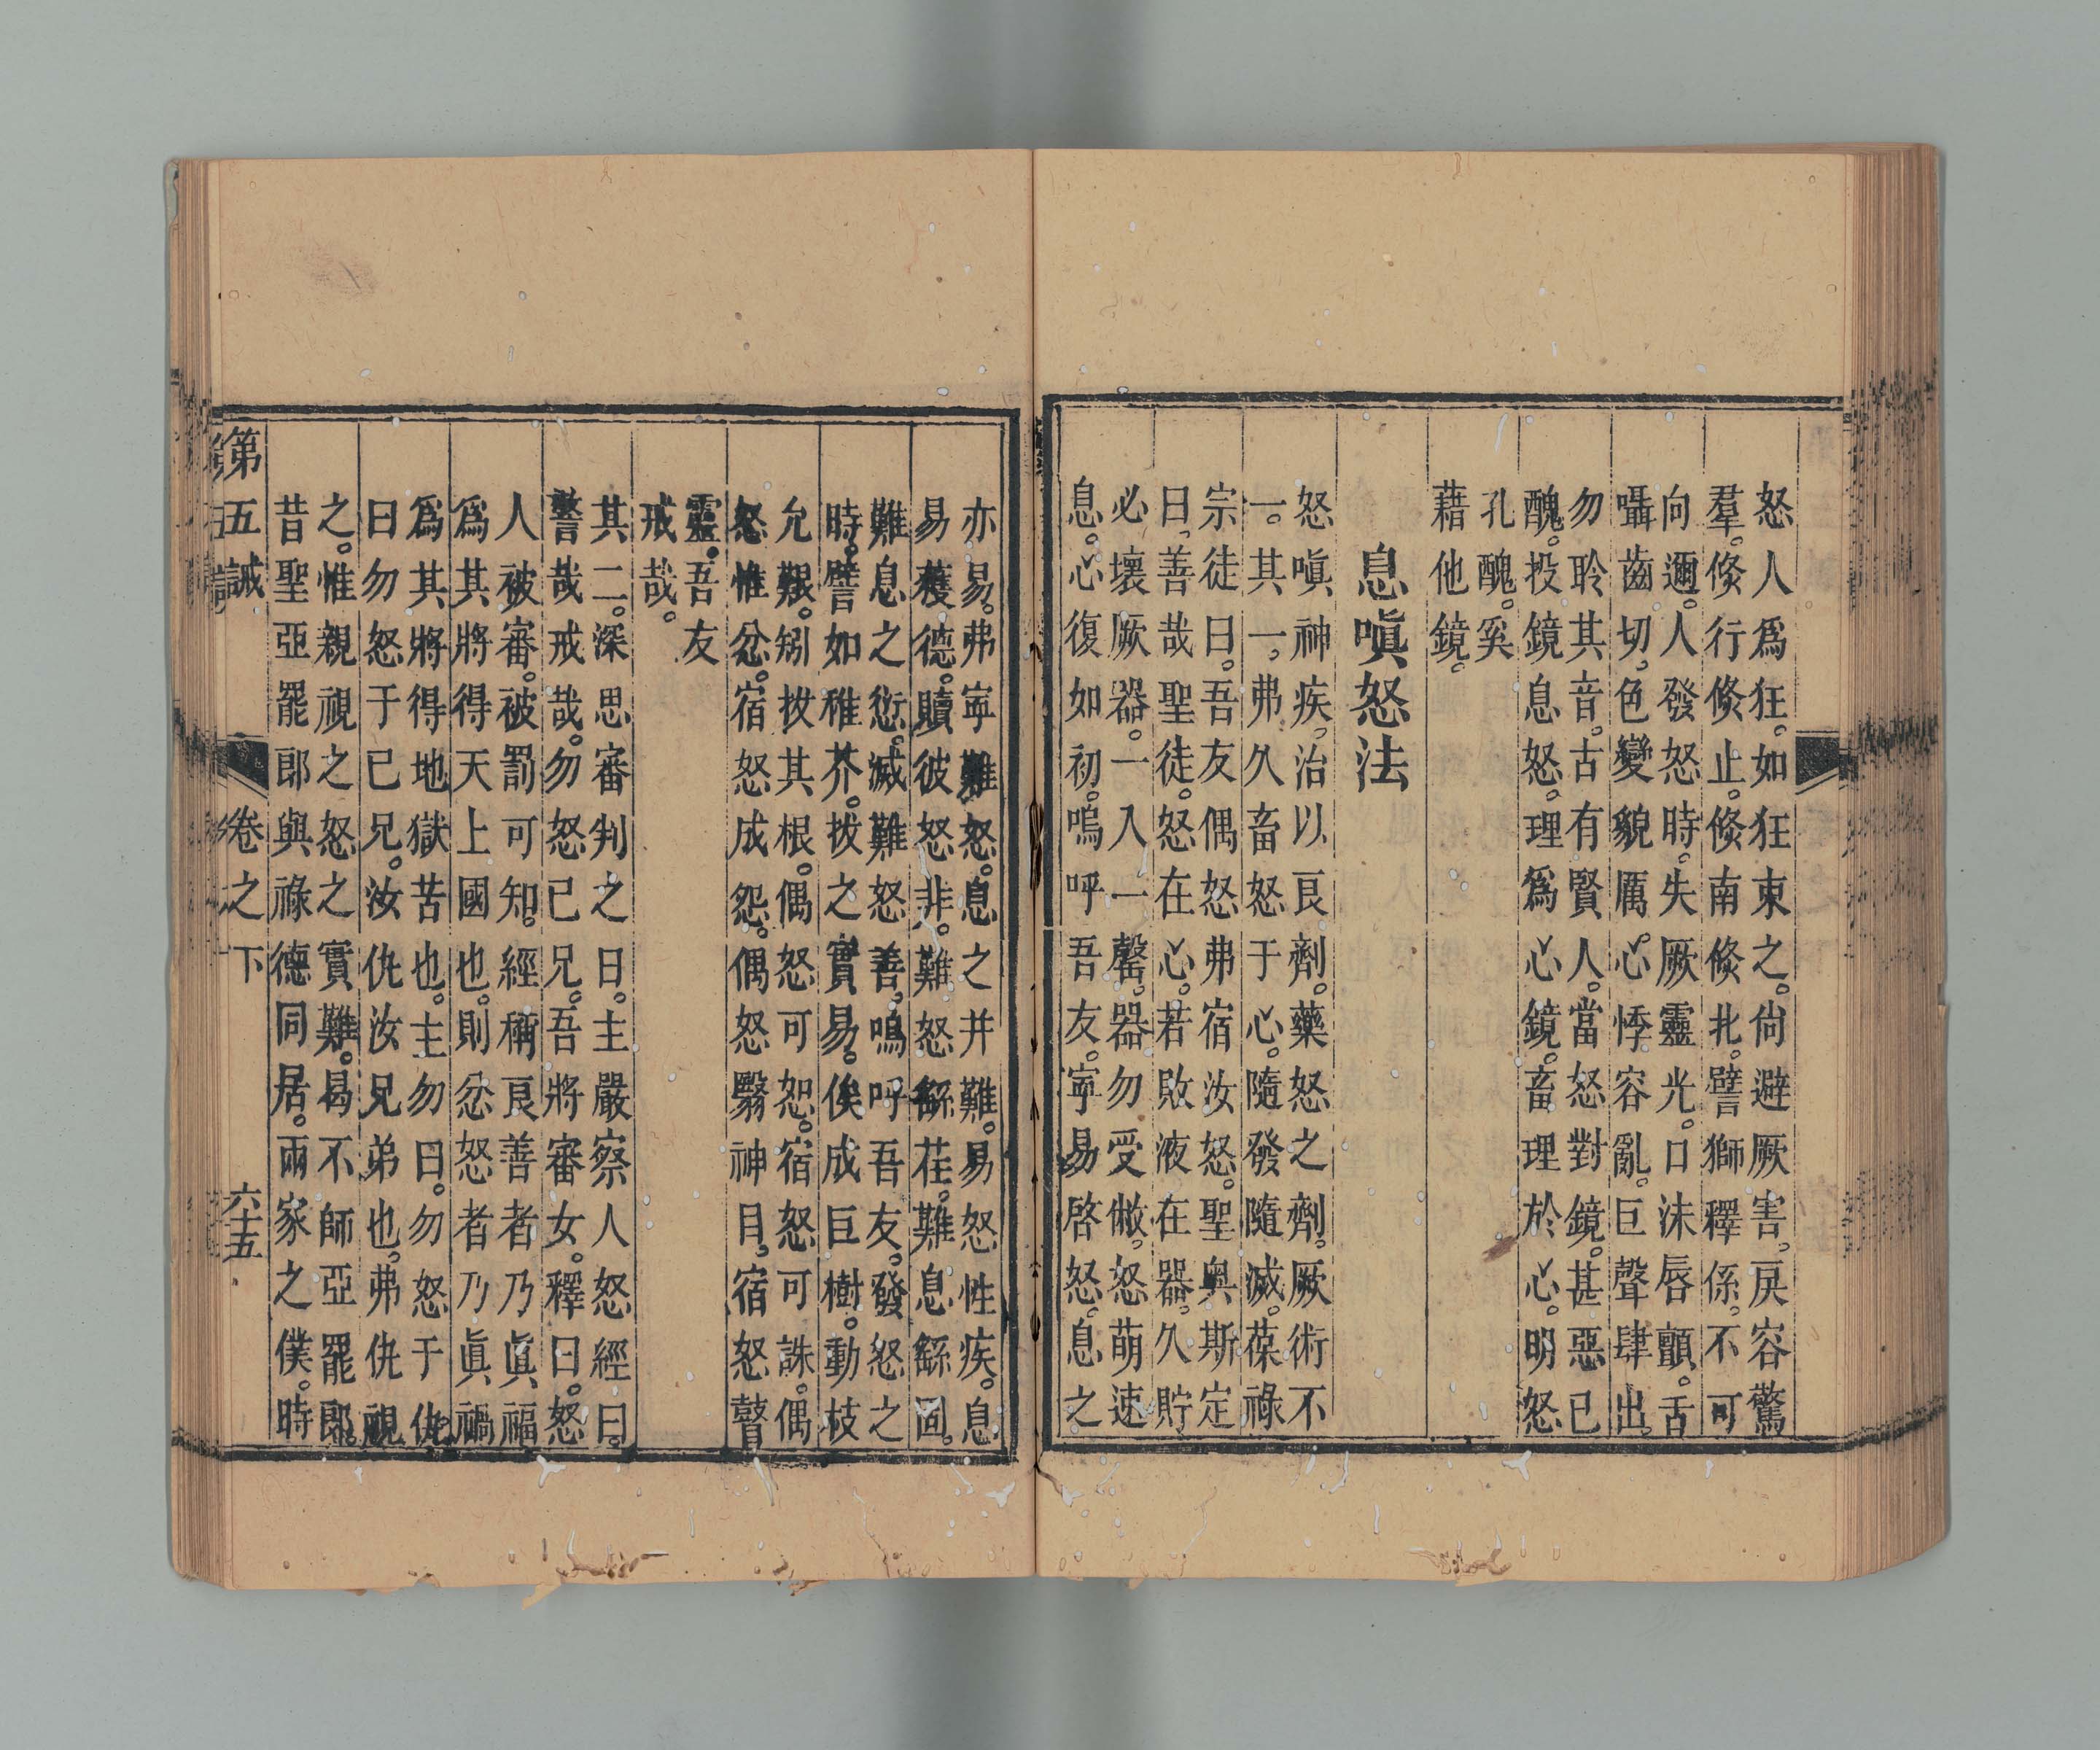 怒人爲狂。如狂束之。尙避厥害。戾容驚
羣。倐行倐止。倐南倐北。譬獅釋係。不可
向邇。人發怒時。失厥靈光。口沫唇顫。舌
囁齒切。色變貌厲。心悸容亂。巨聲肆出。
勿聆其音。古有賢人。當怒對鏡。甚惡已
醜。投鏡息怒。理爲心鏡。畜理於心。明怒
孔醜。奚
藉他鏡。
息嗔怒法
怒嗔神疾。治以良劑。藥怒之劑。厥術不
一。其一。弗久畜怒于心。隨發隨滅。葆祿
宗徒曰。吾友偶怒弗宿汝怒。聖奥斯定
曰。善哉聖徒。怒在心。若敗液在器。久貯
必壞厥器。一入一罄。器勿受敝。怒萌速
息。心復如初。嗚呼吾友。寧易啓怒。息之
亦易。弗寧難怒。息之并難。易怒性疾。息
易穫德。贖彼怒非。難怒繇荏。難息繇固。
難息之愆。滅難怒善。鳴呼吾友。發怒之
時。譬如稚芥。拔之實易。俟成巨樹。動枝
允艱。矧拔其根。偶怒可恕。宿怒可誅。偶
怒惟忿。宿怒成怨。偶怒翳神目。宿怒瞽
靈。吾友
戒哉。
其二。深思審判之日。主嚴察人怒經曰。
警哉戒哉。勿怒已兄。吾將審女。釋曰。怒
人被審。被罰可知。經稱良善者乃眞福
爲其將得天上國也。則忿怒者乃眞禍
爲其將得地獄苦也。主勿曰。勿怒于仇
曰勿怒于已兄。汝仇汝兄弟也。弗仇視
之。惟親視之怒之實難。曷不師亞罷郎。
昔聖亞罷郎與祿德同居。兩家之僕。時
第五誡
卷之下
六十五